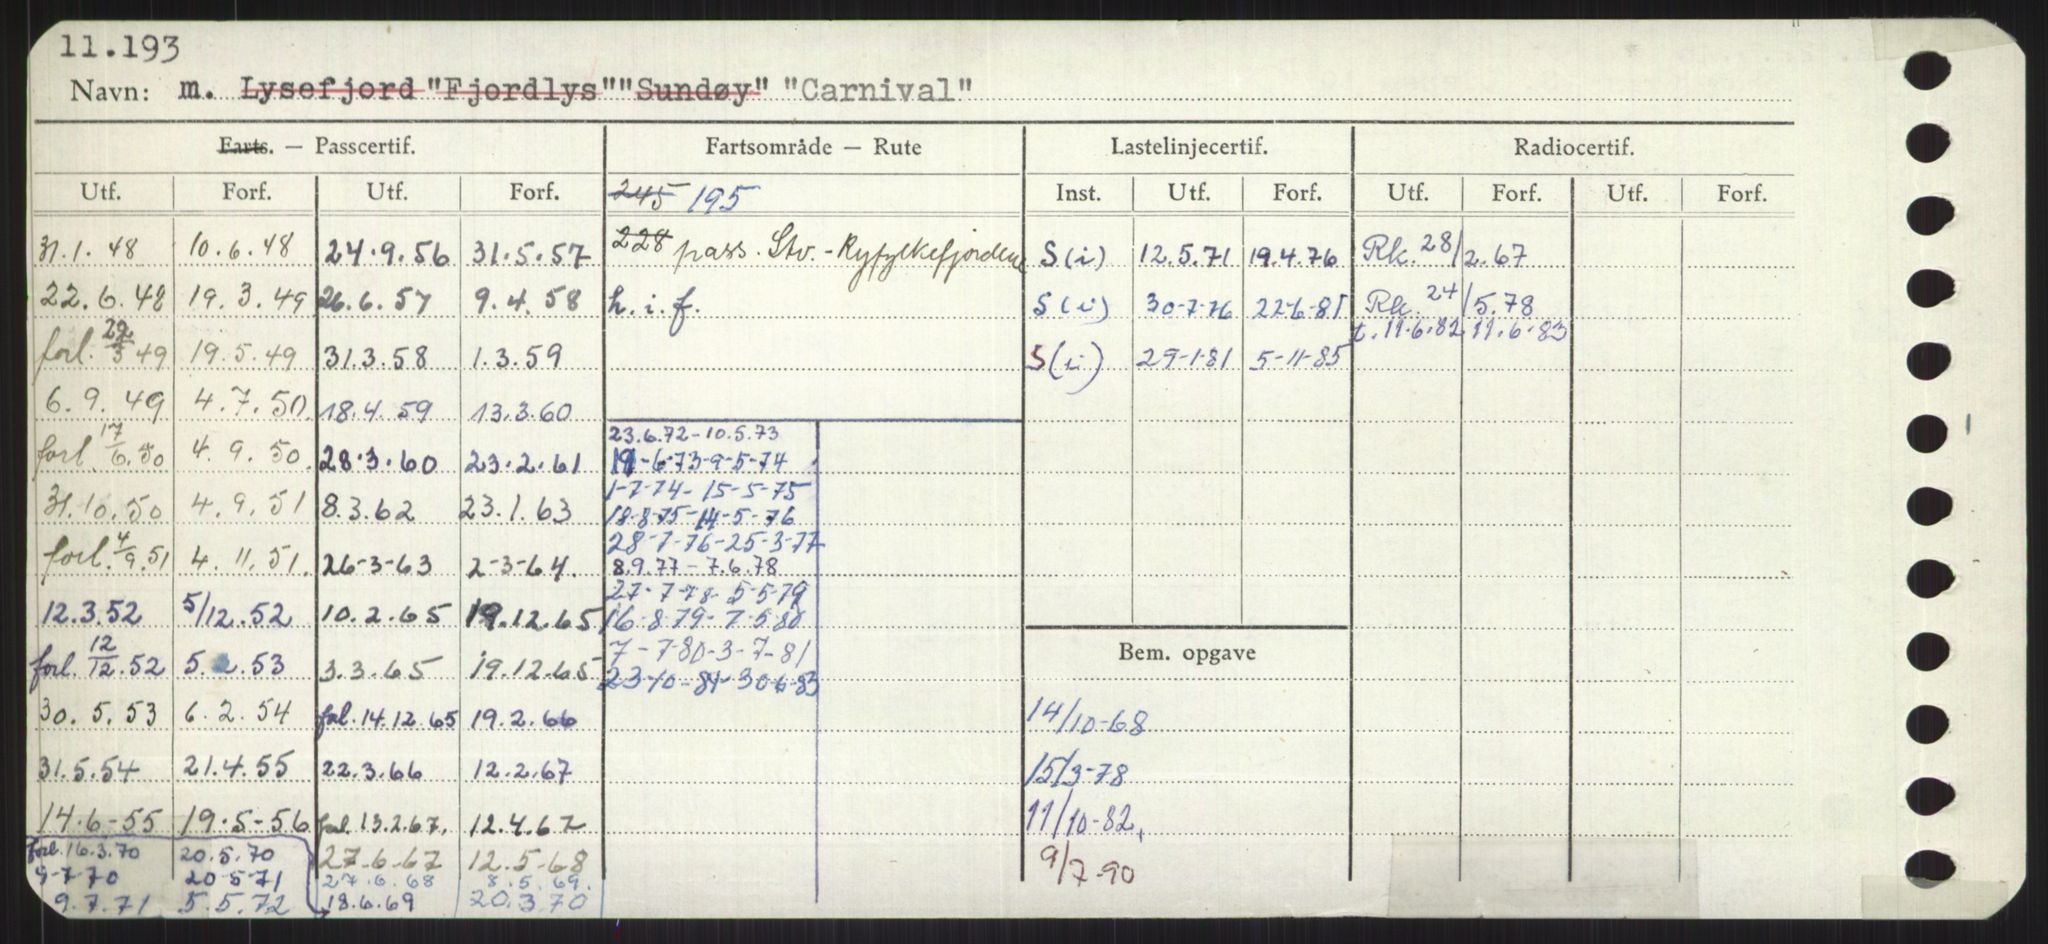 11.193
Navn: m. Lysefjord "Fjordlys" "Sundøy" "Carnival"
Farts. — Passcertif. Fartsområde — Rute Lastelinjecertif. Radiocertif.
Utf. Forf. Utf. Forf. 245 195 Inst. Utf. Forf. Utf. Forf. Utf. Forf.
31.1.48 10.6.48 24.9.56 31.5.57 228 pass. Stv. - Ryfylkefjordene S(i) 12.5.71 19.4.76 Rk. 28/2.67
22.6.48 19.3.49 26.6.57 9.4.58 h.i.f. S(i) 30-7-76 22-6-81 Rk. 24/5.78
t. 11.6.82 11.6.83
forl. 29/3 49 19.5.49 31.3.58 1.3.59 S(i) 29-1-81 5-11-85
6.9.49 4.7.50 18.4.59 13.3.60
23.6.72 - 10.5.73
forl. 17/6.50 4.9.50. 28.3.60 23.2.61 19-6-73-9-5-74
1-7-74- 15-5-75
31.10.50 4.9.51 8.3.62 23.1.63 18-8-75-14-5-76
28-7-76-25-3-77
forl. 4/9.51 4.11.51. 26-3-63 2-3-64. 8.9.77 - 7.6.78
27-7-78- 5-5-79
12.3.52 5/12.52 10.2.65 19.12.65 16-8-79-7-5-80
Bem. opgave
7-7-80-3-7-81
forl. 12/12.52 5.2.53 3.3.65 19.12.65 23-10-81-30-6-83
30.5.53 6.2.54 forl. 14.12.65 19.2.66 14/10-68
31.5.54 21.4.55 22.3.66 12.2.67 15/3-78
14.6-55 19.5-56 forl. 13.2.67. 12.4.67 11/10-82.
forl. 16.3.70 20.5.70 27.6.67 12.5.68 9/7-90
9-7-70 20-5-71 27.6.68 8.5.69.
9.7.71 5.5.72 18.6.69 20.3.70